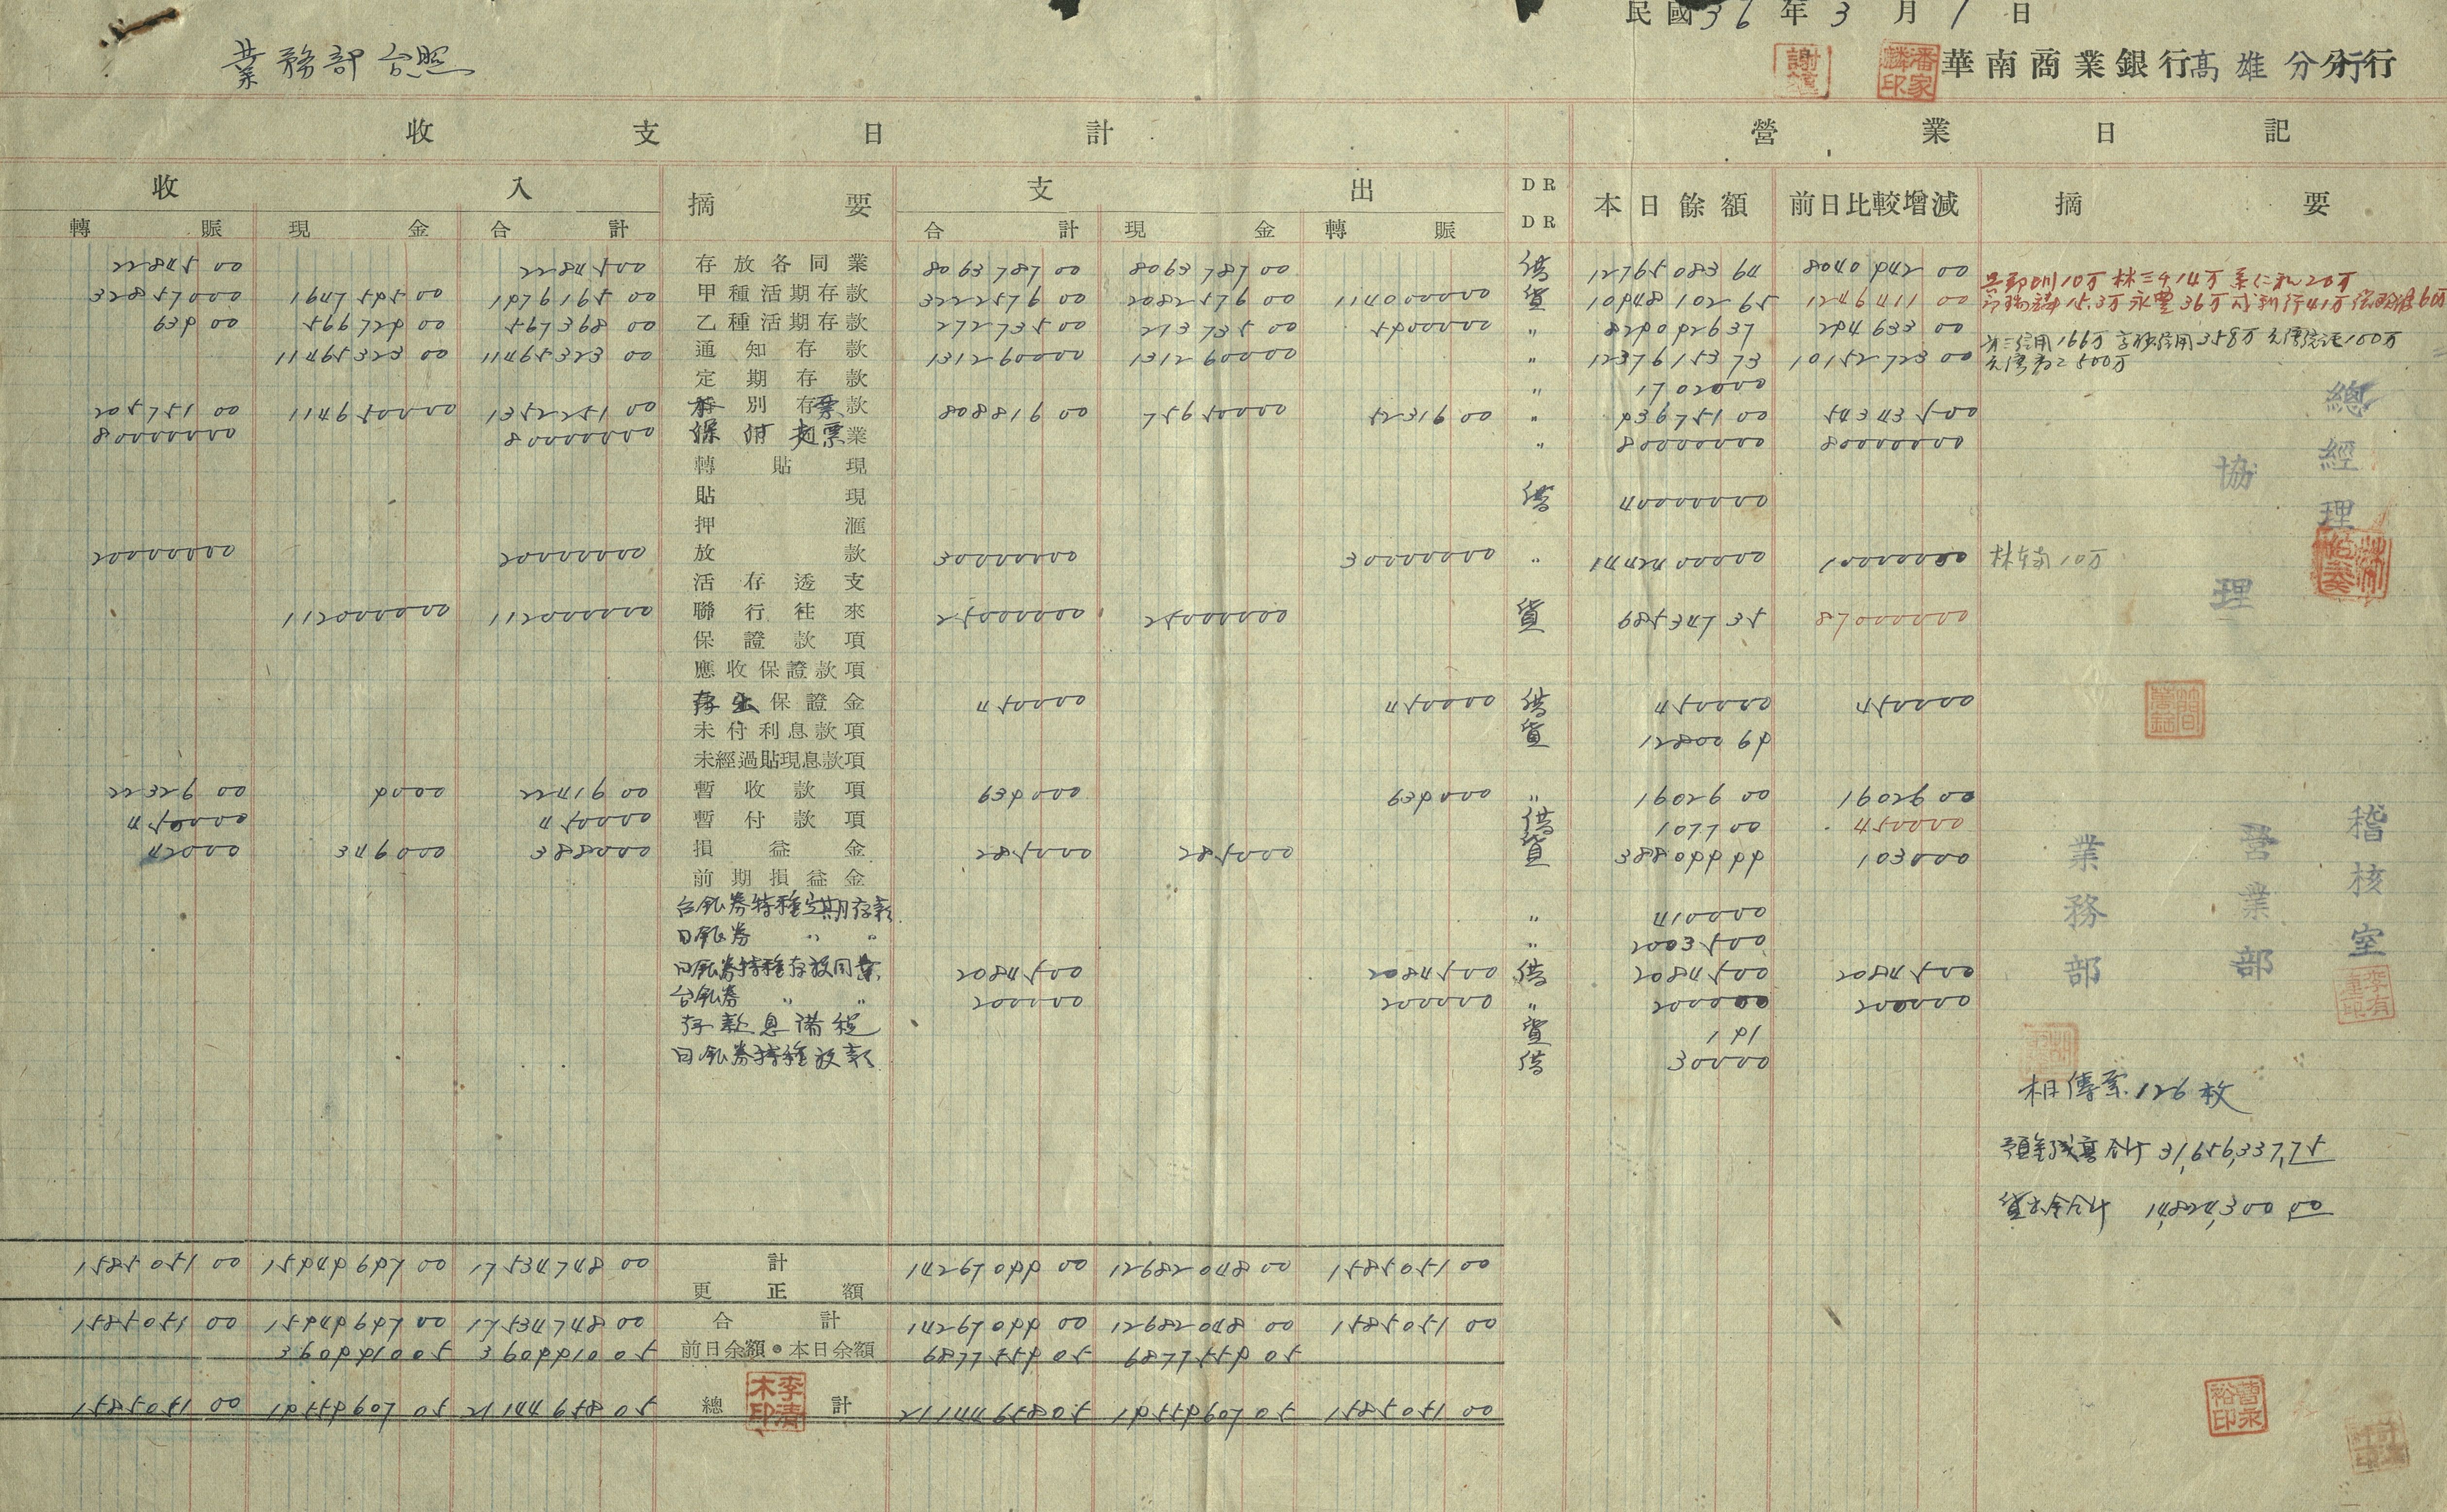 民國36年3月1日
業務部台照
華南商業銀行高雄分行
收支日計
營業日記
收入 摘要 支出 DR DR 本日餘額 前日比較增減 摘要
轉賬 現金 合計 合計 現金 轉賬
22845 00 22845 00 存放各同業 8063787 00 8063787 00 借 12765083 64 8040942 00
328570 00 1647595 00 1976165 00 甲種活期存款 3222576 00 2082576 00 1140000 00 貸 10948102 65 1246411 00
639 00 566729 00 567368 00 乙種活期存款 272735 00 213735 00 59000 00 〃 8290926 37 294633 00
11465323 00 11465323 00 通知存款 1312600 00 1312600 00 〃 12376153 73 10152723 00
定期存款 〃 17020 00
205751 00 1146500 00 1352251 00 別存款 808816 00 756500 00 52316 00 〃 936751 00 543435 00
800000 00 800000 00 保付支票 〃 800000 00 800000 00
轉貼現
貼現 借 400000 00
押滙
200000 00 200000 00 放款 300000 00 300000 00 〃 14424000 00 100000 00 10万
活存透支
1120000 00 1120000 00 聯行往來 250000 00 250000 00 貸 685347 35 870000 00
保證款項
應收保證款項
存出保證金 4500 00 4500 00 借 4500 00 4500 00
未付利息款項 貸 12800 69
未經過貼現息款項
22326 00 90 00 22416 00 暫收款項 6390 00 6390 00 〃 16026 00 16026 00
4500 00 4500 00 暫付款項 借 1077 00 4500 00
420 00 3460 00 3880 00 損益金 2850 00 2850 00 貸 388099 99 1030 00
前期損益金
台銀券特種定期存款 〃 4100 00
日銀券 〃 〃 〃 20035 00
日銀券特種存放同業 20845 00 20845 00 借 20845 00 20845 00
台銀券 〃 〃 2000 00 2000 00 〃 2000 00 2000 00
存款息諸稅 貸 1 91
日銀券特種放款 借 300 00
總經理
協理
稽核室
營業部
業務部
本日傳票 126枚
預金殘高合計 31,656,337,75
貸出金合計 14,824,300 00
1585051 00 15949697 00 17534748 00 計 14267099 00 12682048 00 1585051 00
更正額
1585051 00 15949697 00 17534748 00 合計 14267099 00 12682048 00 1585051 00
3609910 05 3609910 05 前日余額●本日余額 6877559 05 6877559 05
1585051 00 19559607 05 21144658 05 總計 21144658 05 19559607 05 1585051 00
李清木印